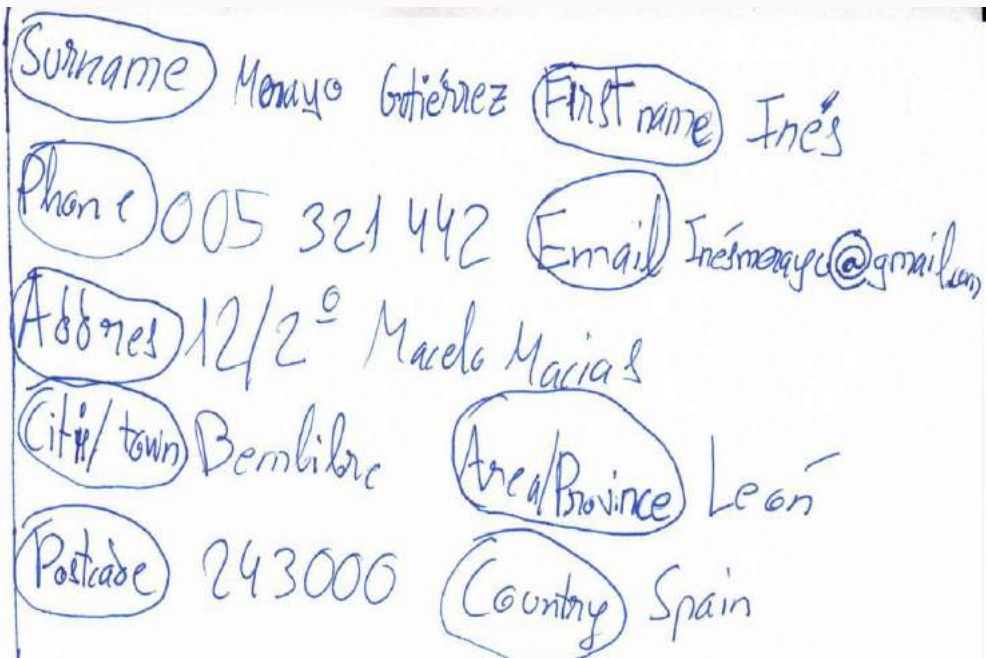 Surname Morayo Gutiérrez First name Inés
Phone 005 321 442 Email Inésmorayo@gmail.com
Addres 12/2º Macelo Macias
City/town Bembibre Area/Province León
Postcode 243000 Country Spain